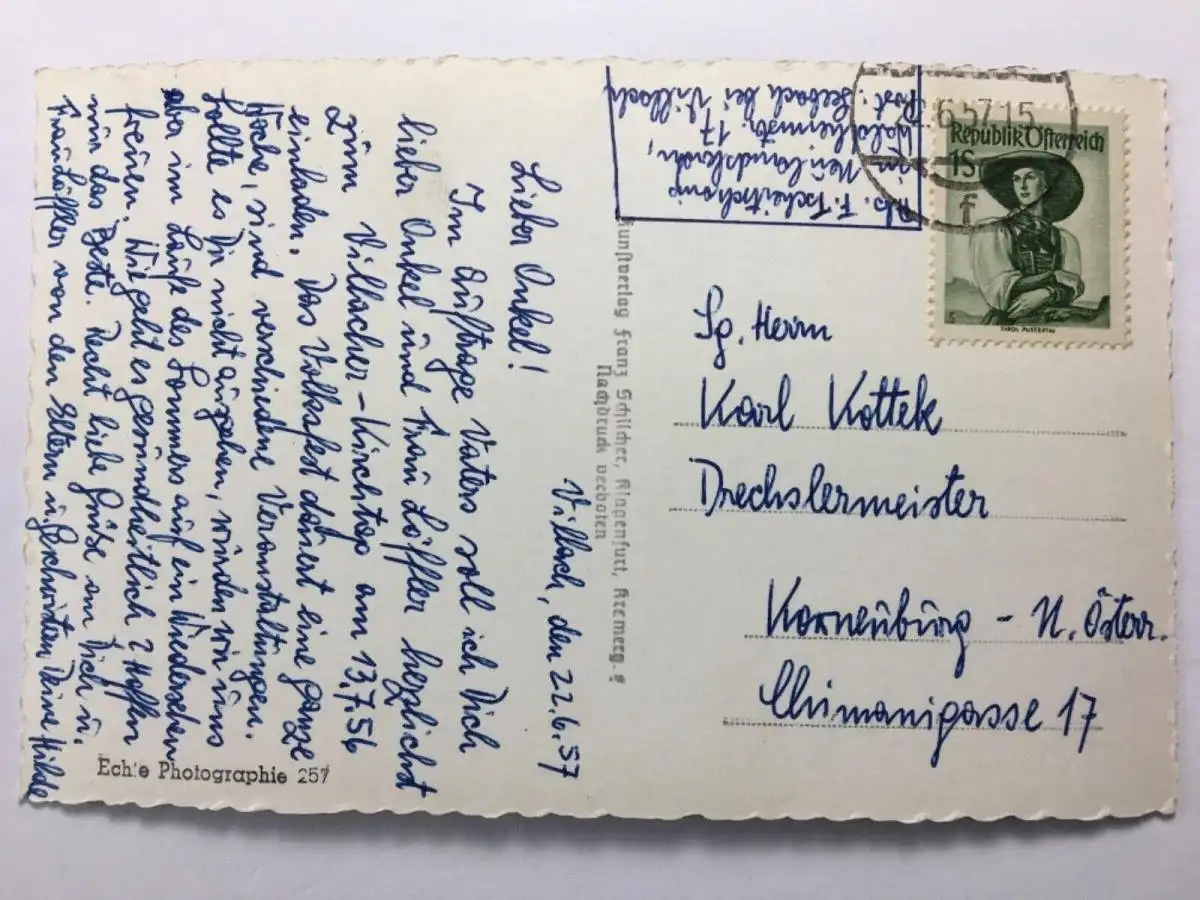 Villach, den 22.6.57
Lieber Onkel!
Im Auftrage Vaters soll ich Dich
lieber Onkel und Frau Löffler herzlichst
zum Villacher-Kirchtag am 13.7.56
einladen. Das Volksfest dauert eine ganze
Woche, sind verschiedene Veranstaltungen.
Sollte es Dir nicht ausgehen, würden wir uns
aber im Laufe des Sommers auf ein Wiedersehen
freuen. Wie geht es gesundheitlich? Hoffen
nur das Beste. Recht liebe Grüße an Dich u.
Frau Löffler von den Eltern u. Geschwistern Deine Hilde
Echte Photographie 257
Kunstverlag Franz Schilcher, Klagenfurt,
Nachdruck verboten
Abs. F. Tscheitschonig
in Neulandskron,
Waldheimstr. 17
Post: Seebach bei Villach
6.57.15
f
Republik Österreich
1S
S
TIROL PUSTERTAL
Sg. Herrn
Karl Kottek
Drechslermeister
Korneuburg - N. Österr.
Chimanigasse 17